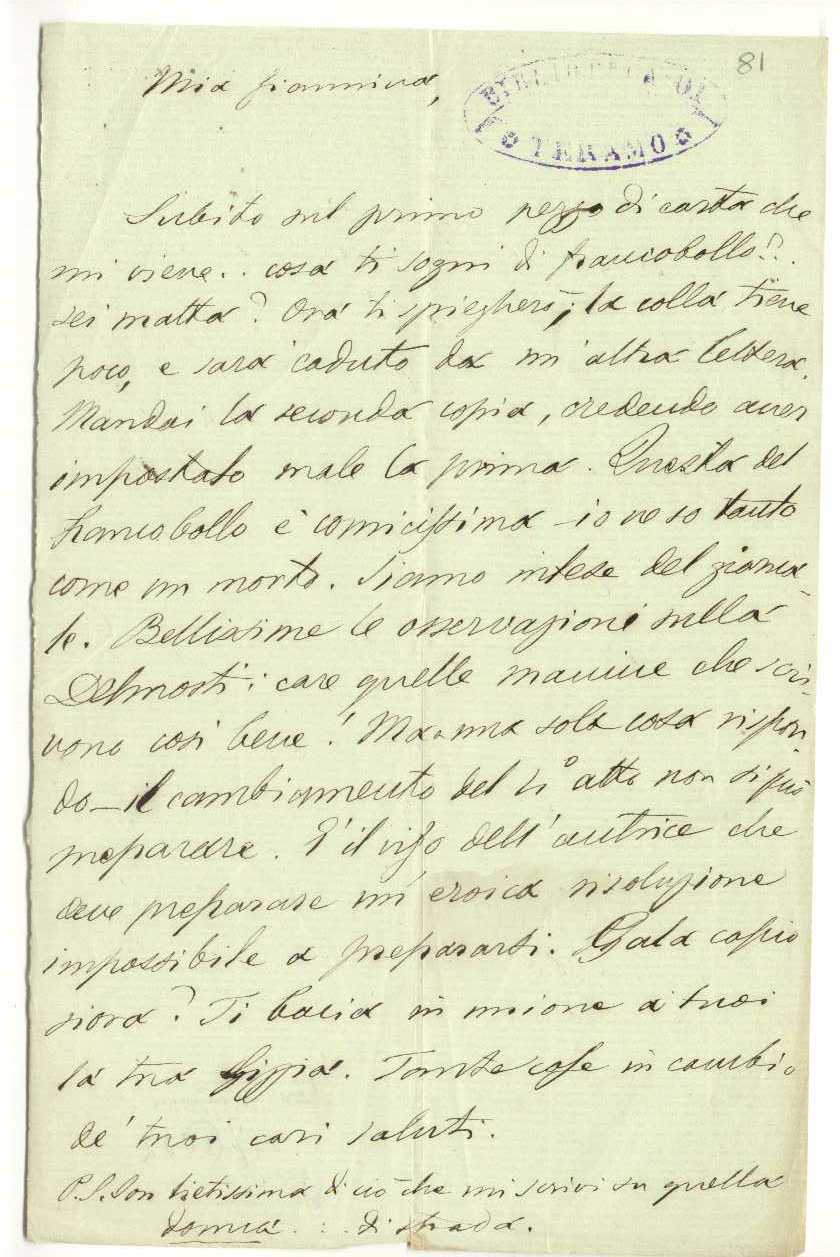 81
BIBLIOTECA DI
TERAMO
Mia Giannina,
Subito sul primo pezzo di carta che
mi viene.. cosa ti sogni di francobollo!?.
sei matta? Ora ti spiegherò; la colla tiene
poco, e sarà caduto da un'altra lettera.
Mandai la seconda copia, credendo aver
impostato male la prima. Questa del
francobollo è comicissima - io ne so tanto
come un morto. Siamo intese del giorna-
le. Bellissime le osservazioni sulla
care quelle manine che scri-
vono così bene! Ma a una sola cosa rispon-
do - il cambiamento del 5° atto non si può
preparare. È il viso dell'autrice che
deve preparare un'eroica risoluzione
impossibile a prepararsi. capio
siora? Ti bacia in unione ai tuoi
la tua Gippia. Tante cose in cambio
de' tuoi cari saluti.
P.S. Son lietissima di ciò che mi scrivi su quella
donna ... di strada.